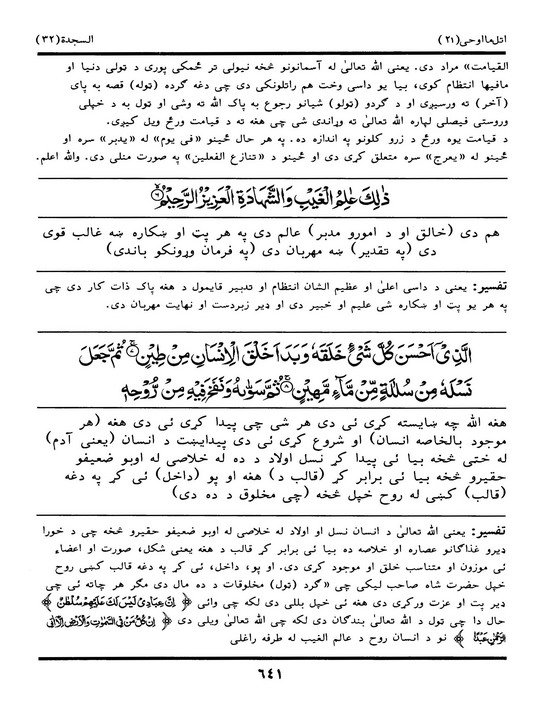 اتل مااوحی(۲۱) السجدة(۳۲)
القيامت» مراد دی. يعنی الله تعالیٰ له آسمانونو څخه نيولی تر ځمکی پوری د تولی دنيا او
مافيها انتظام کوی، بيا يو داسی وخت هم راتلونکی دی چی دغه گرده (توله) قصه به پای
(آخر) ته ورسيږی او د گردو (تولو) شيانو رجوع به پاک الله ته وشی او تول به د خپلی
وروستی فيصلی لپاره الله تعالیٰ ته وړاندی شی چی هغه ته د قيامت ورځ ويل کيږی.
د قيامت يوه ورځ د زرو کلونو په اندازه ده. په هر حال ځينو «فی يوم» له «يدبر» سره او
ځينو له «يعرج» سره متعلق کړی دی او ځينو د «تنازع الفعلين» په صورت منلی دی. والله اعلم.
ذٰلِكَ عٰلِمُ الْغَيْبِ وَالشَّهَادَةِ الْعَزِيْزُ الرَّحِيْمُ ۝۶
هم دی (خالق او د امورو مدبر) عالم دی په هر پټ او ښکاره ښه غالب قوی
دی (په تقدير) ښه مهربان دی (په فرمان وړونکو باندی)
تفسير: يعنی د داسی اعلیٰ او عظيم الشان انتظام او تدبير قايمول د هغه پاک ذات کار دی چی
په هر يو پټ او ښکاره شی عليم او خبير دی او ډير زبردست او نهايت مهربان دی.
الَّذِیْۤ اَحْسَنَ كُلَّ شَیْءٍ خَلَقَهٗ وَبَدَاَ خَلْقَ الْاِنْسَانِ مِنْ طِيْنٍ ۝۷ ثُمَّ جَعَلَ
نَسْلَهٗ مِنْ سُلٰلَةٍ مِّنْ مَّآءٍ مَّهِيْنٍ ۝۸ ثُمَّ سَوّٰىهُ وَنَفَخَ فِيْهِ مِنْ رُّوْحِهٖ
هغه الله چه ښايسته کړی ئی دی هر شی چی پيدا کړی ئی دی هغه (هر
موجود بالخاصه انسان) او شروع کړی ئی دی پيدايښت د انسان (يعنی آدم)
له ختی څخه بيا ئی پيدا کړ نسل اولاد د ده له خلاصی له اوبو ضعيفو
حقيرو څخه بيا ئی برابر کړ (قالب د) هغه او پو (داخل) ئی کړ په دغه
(قالب) کښی له روح خپل څخه (چی مخلوق د ده دی)
تفسير: يعنی الله تعالیٰ د انسان نسل او اولاد له خلاصی له اوبو ضعيفو حقيرو څخه چی د خورا
ډيرو غذاگانو عصاره او خلاصه ده بيا ئی برابر کړ قالب د هغه يعنی شکل، صورت او اعضاء
ئی موزون او متناسب خلق او موجود کړی دی. او پو، داخل، ئی کړ په دغه قالب کښی روح
خپل حضرت شاه صاحب ليکی چی «گرد (تول) مخلوقات د ده مال دی مگر هر چاته ئی چی
ډير پت او عزت ورکړی دی هغه ئی خپل بللی دی لکه چی وائی ﴿ اِنَّ عِبَادِیْ لَيْسَ لَكَ عَلَيْهِمْ سُلْطٰنٌ ﴾
حال دا چی تول د الله تعالیٰ بندگان دی لکه چی الله تعالیٰ ويلی دی ﴿ اِنْ كُلُّ مَنْ فِی السَّمٰوٰتِ وَالْاَرْضِ اِلَّاۤ اٰتِی
الرَّحْمٰنِ عَبْدًا ﴾ نو د انسان روح د عالم الغيب له طرفه راغلی
٦٤١